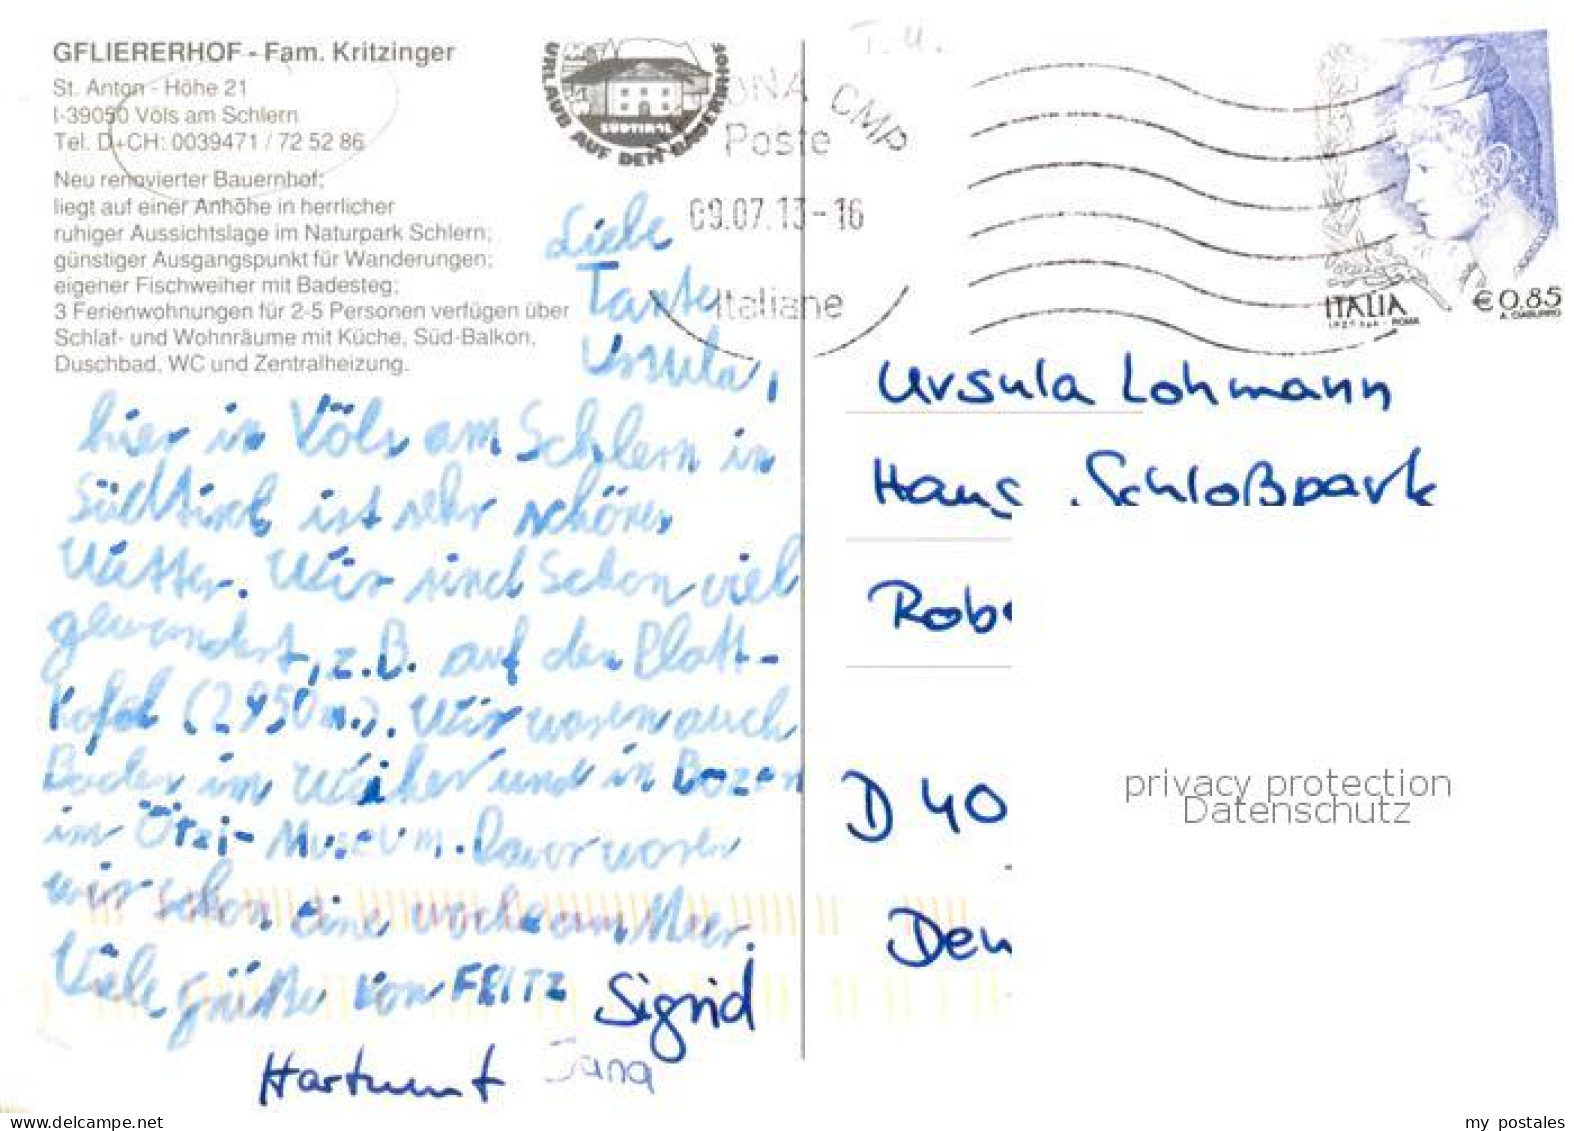 GFLIERERHOF - Fam. Kritzinger
St. Anton - Höhe 21
I-39050 Völs am Schlern
Tel. D+CH: 0039471 / 72 52 86
Neu renovierter Bauernhof;
liegt auf einer Anhöhe in herrlicher
ruhiger Aussichtslage im Naturpark Schlern;
günstiger Ausgangspunkt für Wanderungen;
eigener Fischweiher mit Badesteg;
3 Ferienwohnungen für 2-5 Personen verfügen über
Schlaf- und Wohnräume mit Küche, Süd-Balkon,
Duschbad, WC und Zentralheizung.
URLAUB AUF DEM BAUERNHOF
SÜDTIROL
Liebe
Tante
Ursula,
hier in Völs am Schlern in
Südtirol ist sehr schönes
Wetter. Wir sind Schon viel
gewandert, z.B. auf den Platt-
kofel (2950m.). Wir waren auch
Baden im Weiher und in Bozen
im Ötzi-Museum. Davor waren
wir schon eine woche am Meer.
Viele grüße von FRITZ
Sigrid
Hartmut Jana
T. U.
CMP
Poste
09.07.13-16
Italiane
ITALIA
€0,85
ROMA
Ursula Lohmann
Haus Schloßpark
Robe
D 40
Den
privacy protection
Datenschutz
www.delcampe.net
my_postales